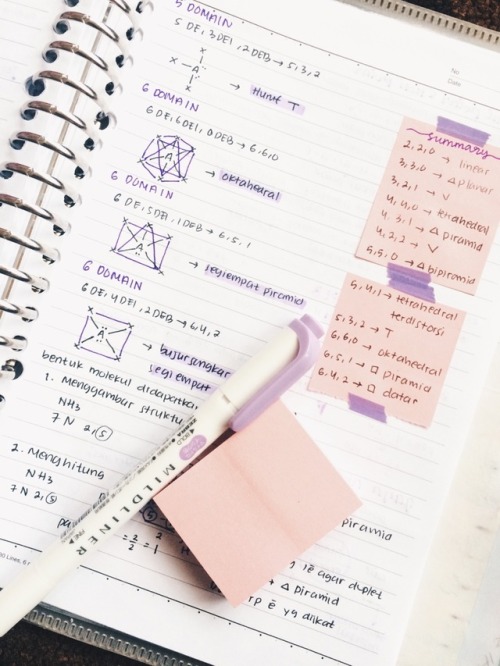 5 DOMAIN
5 DE, 3 DEI, 2 DEB → 5, 3, 2
X
X A
X
→ Huruf T
6 DOMAIN
6 DE, 6 DEI, 0 DEB → 6, 6, 0
A
→ oktahedral
6 DOMAIN
6 DE, 5 DEI, 1 DEB → 6, 5, 1
A
→ segiempat piramid
6 DOMAIN
6 DE, 4 DEI, 2 DEB → 6, 4, 2
A
→ bujursangkar
segiempat
bentuk molekul didapatkan
1. Menggambar struktu
NH3
7 N 2, 5
2. Menghitung
NH3
7 N 2, 5
No
Date
summary
2, 2, 0 → linear
3, 3, 0 → Δ planar
3, 2, 1 → V
4, 4, 0 → tetrahedral
4, 3, 1 → Δ piramid
4, 2, 2 → V
5, 5, 0 → Δ bipiramid
5, 4, 1 → tetrahedral
terdistorsi
5, 3, 2 → T
6, 6, 0 → oktahedral
6, 5, 1 → □ piramid
6, 4, 2 → □ datar
ZEBRA
MILDLINER
piramid
= 2/2 = 1
iē agar duplet
+ Δ piramid
ē yg diikat